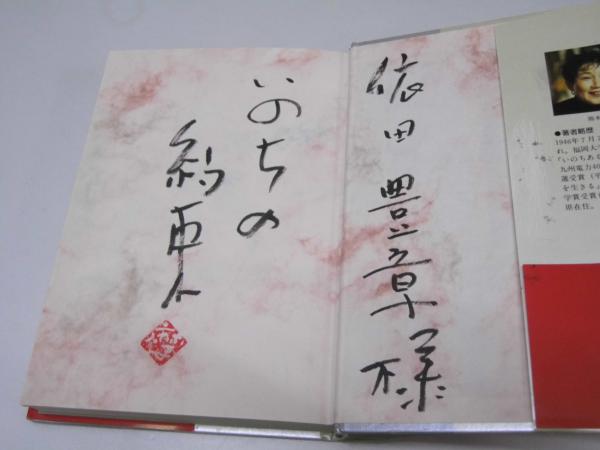 ●著者略歴
1946年7月
れ。福岡大
「いのちある
九州電力40
選受賞（平
を生きる」
学賞受賞
県在住。
依田豊章様
いのちの
約束